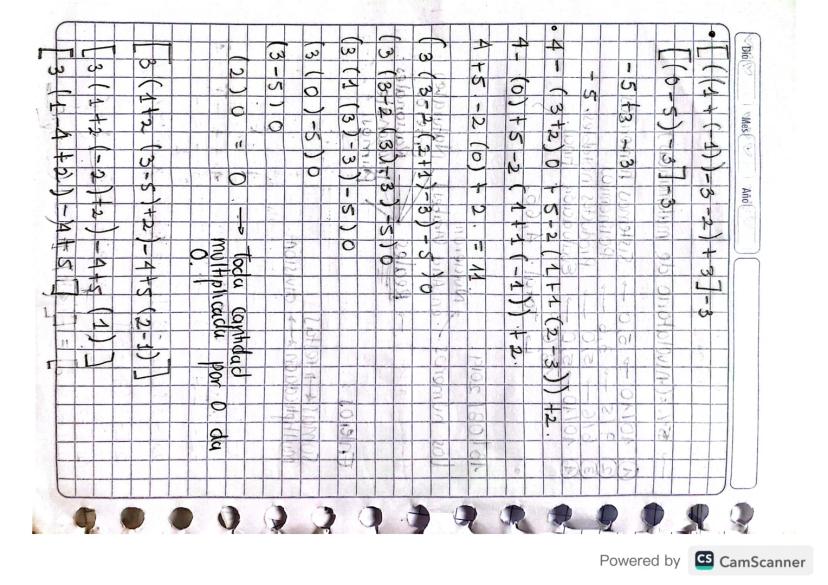 Día Mes Año
• [((1+(-1))-3-2)+3]-3
[(0-5)-3]-3
-5+3-3
-5
• 4-(3+2)0+5-2(1+1(2-3))+2.
4-(0)+5-2(1+1(-1))+2.
4+5-2(0)+2.=11.
(3(3-2(2+1)-3)-5)0
(3(3-2(3)-3)-5)0
(3(1(3)-3)-5)0
(3(0)-5)0
(3-5)0
(2)0 = 0 → toda cantidad
multiplicada por 0 da
0.
[3(1+2(3-5)+2)-4+5(2-1)]
[3(1+2(-2)+2)-4+5(1)]
[3(1-4+2)-4+5]
Powered by CS CamScanner